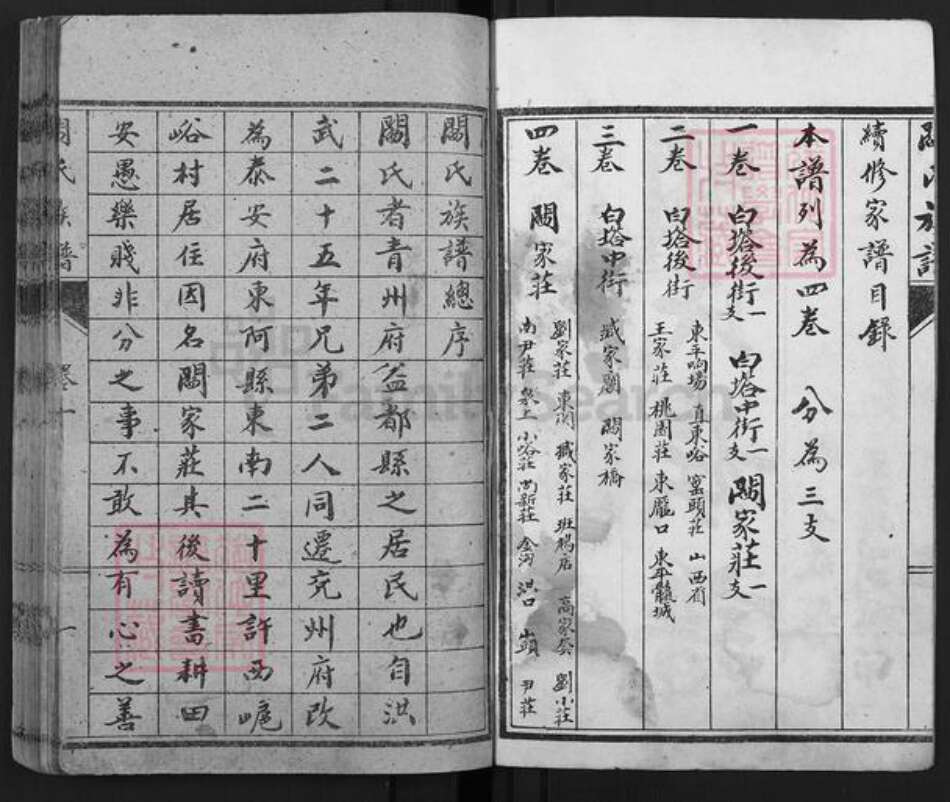 續修家譜目録
本譜列為四卷 分為三支
一卷 白塔後街一支 白塔中街一支 闗家莊一支
二卷 白塔後街 東平响場 直東峪 窑頭莊 山西省
王家莊 桃園莊 東龎口 東平龍城
三卷 白塔中街 臧家廟 闗家橋
四卷 闗家莊 劉家莊 東澗 臧家莊 班鳩店 高家套 劉小莊
南尹莊 小峪莊 尚新莊 金河 洪口 山頭 尹莊
闗氏族譜總序
闗氏者青州府益都縣之居民也自洪
武二十五年兄弟二人同遷兗州府改
為泰安府東阿縣東南二十里許西嵼
峪村居住因名闗家莊其後讀書耕田
安愚樂賤非分之事不敢為有心之善
闗氏族譜 卷一 一